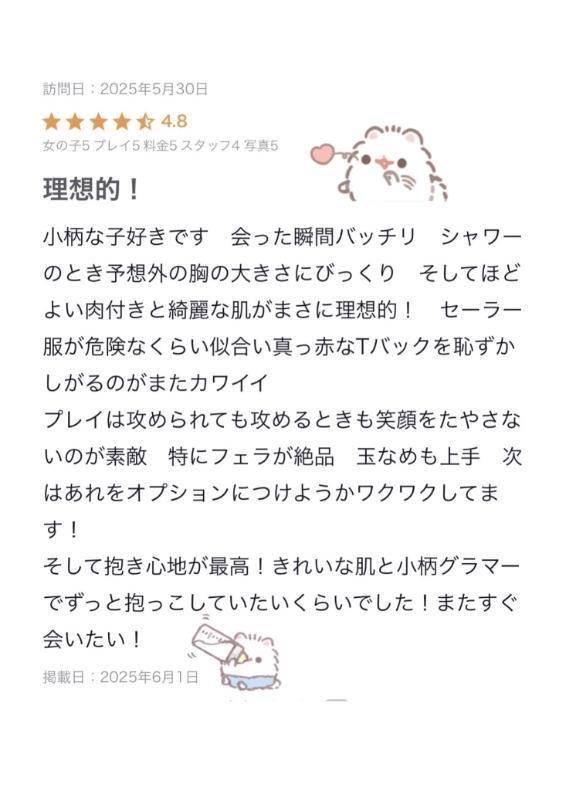 訪問日：2025年5月30日
4.8
女の子5 プレイ5 料金5 スタッフ4 写真5
理想的！
小柄な子好きです　会った瞬間バッチリ　シャワー
のとき予想外の胸の大きさにびっくり　そしてほど
よい肉付きと綺麗な肌がまさに理想的！　セーラー
服が危険なくらい似合い真っ赤なTバックを恥ずか
しがるのがまたカワイイ
プレイは攻められても攻めるときも笑顔をたやさな
いのが素敵　特にフェラが絶品　玉なめも上手　次
はあれをオプションにつけようかワクワクしてま
す！
そして抱き心地が最高！きれいな肌と小柄グラマー
でずっと抱っこしていたいくらいでした！またすぐ
会いたい！
掲載日：2025年6月1日